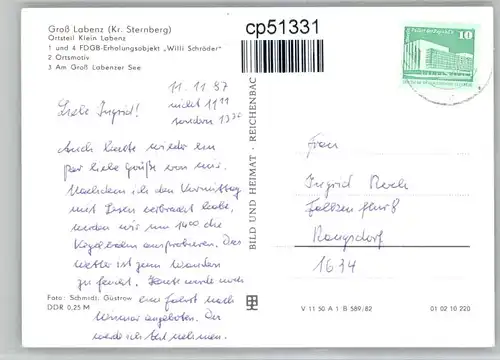 Groß Labenz (Kr. Sternberg)
Ortsteil Klein Labenz
1 und 4 FDGB-Erholungsobjekt „Willi Schröder"
2 Ortsmotiv
3 Am Groß Labenzer See
cp51331
10
11. 11. 87
nicht 11 11
sondern 13
Liebe Ingrid!
Auch heute wieder ein
paar liebe Grüße von mir.
Nachdem ich den Vormittag
mit Lesen verbracht habe,
werden wir um 14 00 die
Kegelbahn ausprobieren. Das
Wetter ist zum Wandern
zu feucht. Heute wurde noch
eine Fahrt nach
Wismar angeboten. Da
werde ich mit
Foto: Schmidt, Güstrow
DDR 0,25 M
BILD UND HEIMAT · REICHENBACH
Frau
Ingrid
Rangsdorf
1634
V 11 50 A 1 B 589/82
01 02 10 220